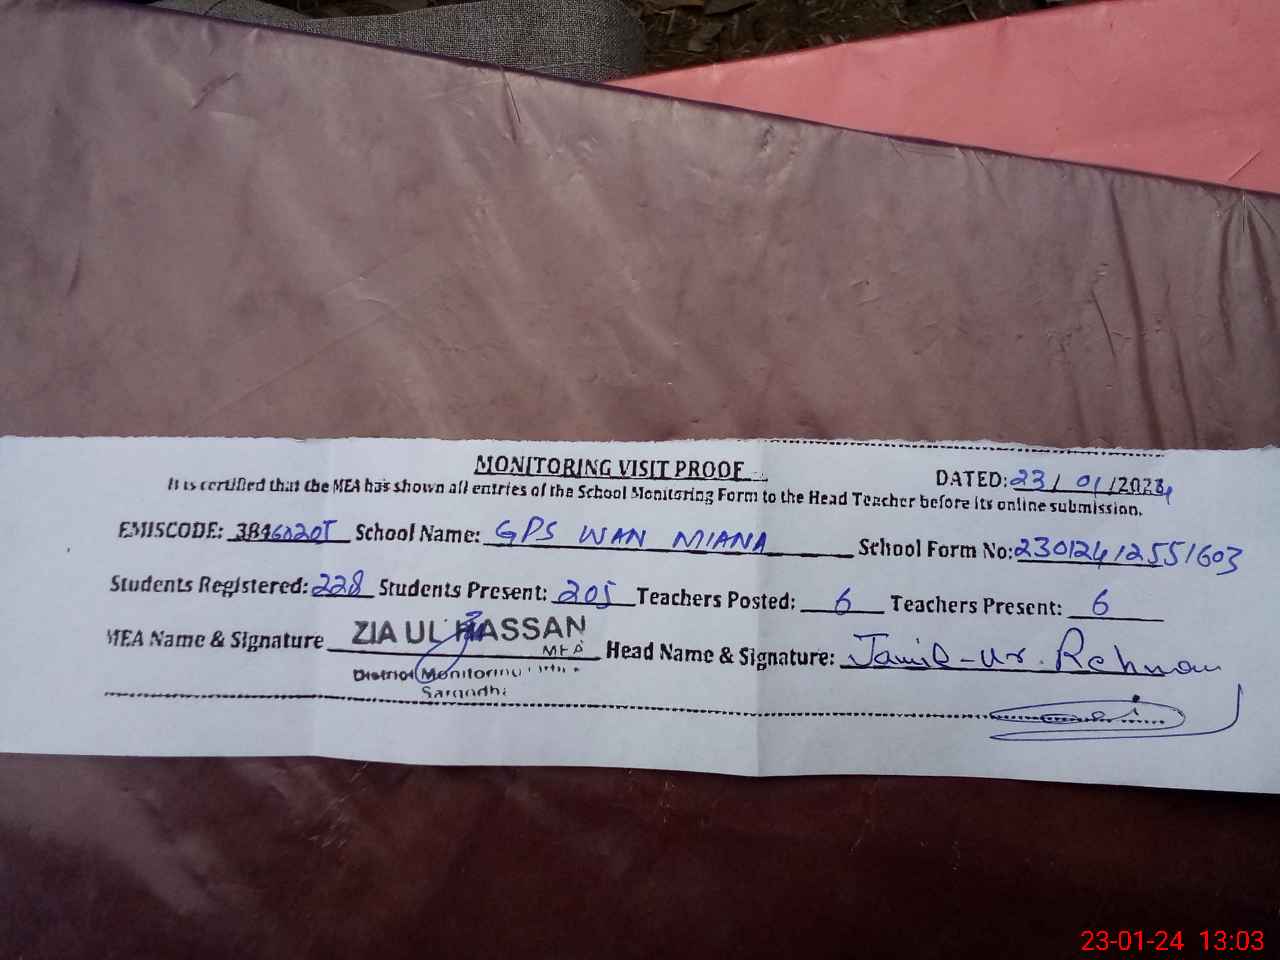 MONITORING VISIT PROOF
DATED: 23/01/2024
It is certified that the MEA has shown all entries of the School Monitoring Form to the Head Teacher before its online submission.
EMISCODE: School Name: GPS WAN MIANA School Form No: 23012412551603
Students Registered: 228 Students Present: 205 Teachers Posted: 6 Teachers Present: 6
MEA Name & Signature ZIA UL HASSAN Head Name & Signature: Jamil-ur-Rehman
MEA
District Monitoring
Sargodha
23-01-24 13:03